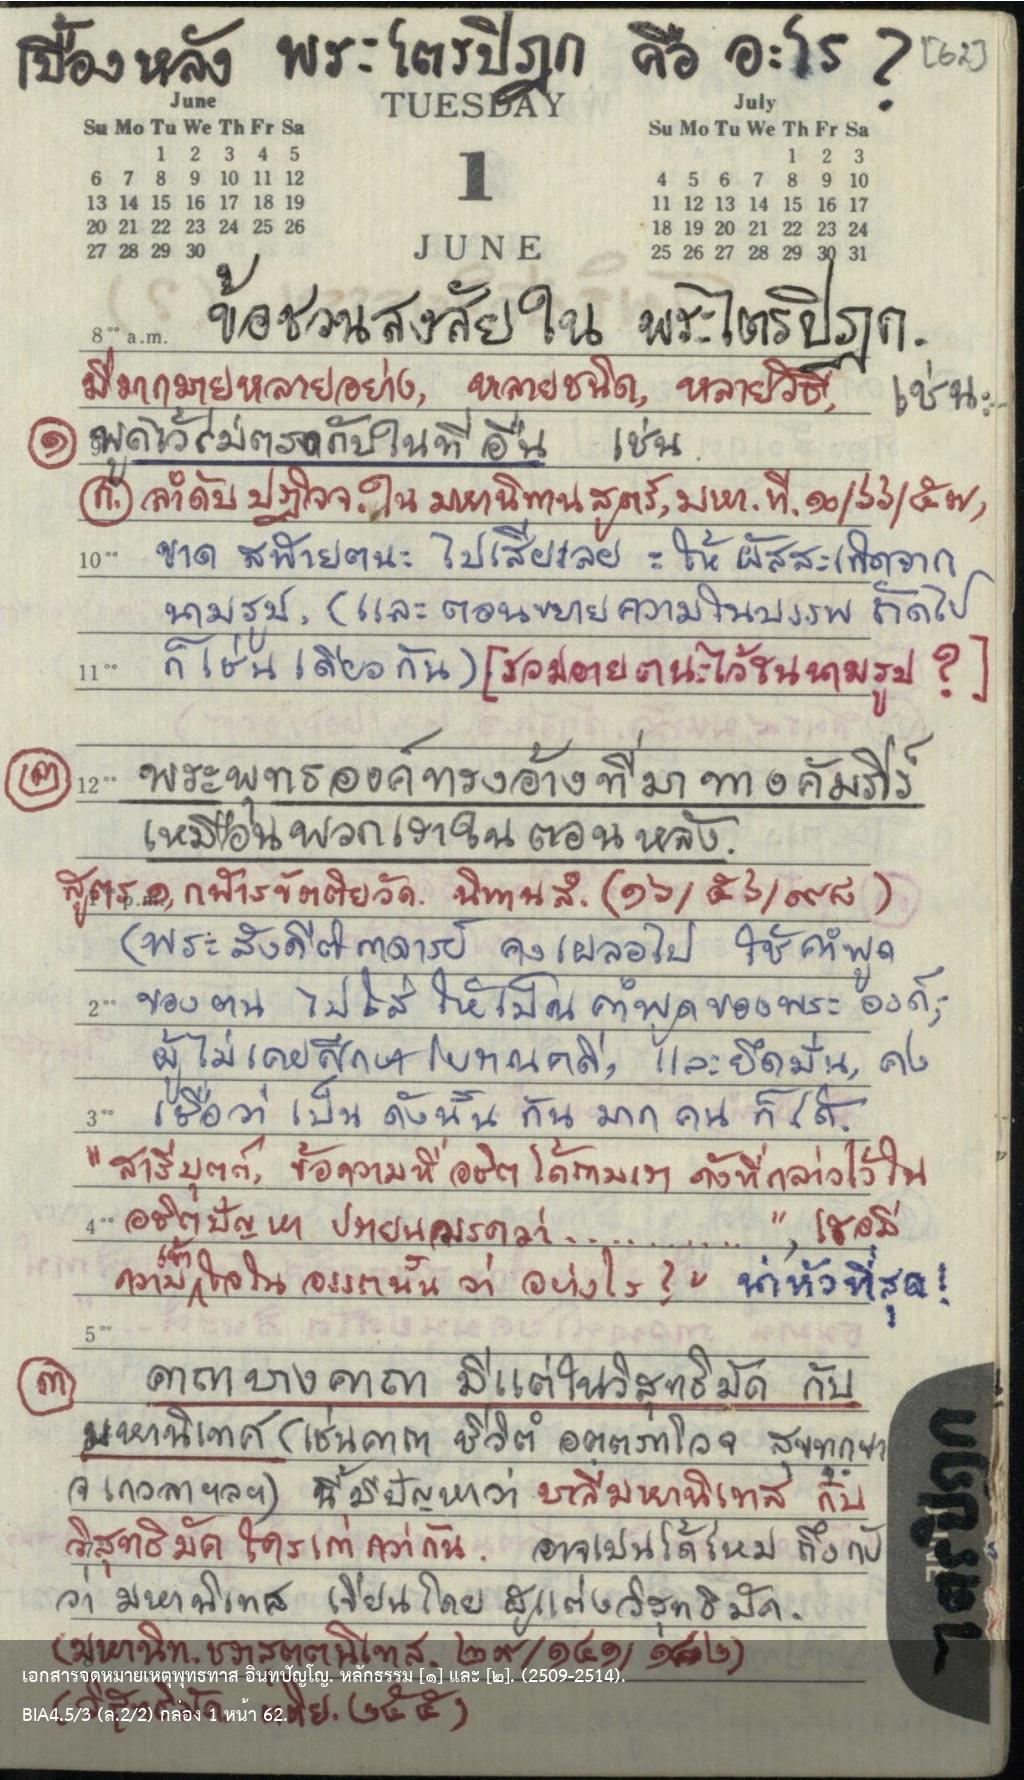 เบื้องหลัง พระไตรปิฎก คือ อะไร ? [62]
June TUESDAY July
Su Mo Tu We Th Fr Sa Su Mo Tu We Th Fr Sa
1 2 3 4 5 1 1 2 3
6 7 8 9 10 11 12 4 5 6 7 8 9 10
13 14 15 16 17 18 19 11 12 13 14 15 16 17
20 21 22 23 24 25 26 18 19 20 21 22 23 24
27 28 29 30 JUNE 25 26 27 28 29 30 31
8°° a.m. ข้อชวนสงสัยใน พระไตรปิฎก.
มีมากมายหลายอย่าง, หลายชนิด, หลายวิธี, เช่น:-
๑ พูดไว้ไม่ตรงกับในที่อื่น เช่น
(ก.) ลำดับ ปฏิจจ. ใน มหานิทานสูตร์, มหา. ที. ๑๐/๖๖/๕๗,
10°° ขาด สฬายตนะ ไปเสียเลย = ให้ ผัสสะเกิดจาก
นามรูป. (และ ตอนขยายความในบรรพ ถัดไป
11°° ก็เช่นเดียวกัน) [รวมอายตนะไว้ในนามรูป ?]
๒ 12°° พระพุทธองค์ทรงอ้างที่มาทางคัมภีร์
เหมือนพวกเราในตอนหลัง.
สูตร ๑, กฬารขัตติยวัค. นิทานสํ. (๑๖/๕๖/๙๘)
(พระสังคีติกาจารย์ คงเผลอไป ใช้คำพูด
2°° ของตน ไปใส่ ให้เป็นคำพูดของพระองค์;
ผู้ไม่เคยศึกษา และยึดมั่น, คง
3°° เชื่อว่า เป็น ดังนั้น กันมากคนก็ได้.
"สารีบุตต์, ข้อความที่ อชิตได้ถามเรา ดังที่กล่าวไว้ใน
4°° อชิตปัญหา ปรายนวรรคว่า . . . . . . . . . . ", เธอมี
ความเข้าใจใน อรรถนั้น ว่า อย่างไร ?" น่าหัวที่สุด!
5°°
๓ คาถาบางคาถา มีแต่ในวิสุทธิมัค กับ
มหานิเทศ (เช่นคาถา ชีวิตํ อตฺตภาโวจ สุขทุกฺขา
จ เกวลา ฯลฯ) นี้มีปัญหาว่า บาลีมหานิเทส กับ
วิสุทธิมัค ใครเก่ากว่ากัน. อาจเป็นได้ไหม ถึงกับ
ว่า มหานิเทส เขียนโดย ผู้แต่งวิสุทธิมัค.
(มหานิท. ๒๙/๑๔๑/๑๘๒)
ไตรปิฎก
เอกสารจดหมายเหตุพุทธทาส อินทปัญโญ. หลักธรรม [๑] และ [๒]. (2509-2514).
BIA4.5/3 (ล.2/2) กล่อง 1 หน้า 62.